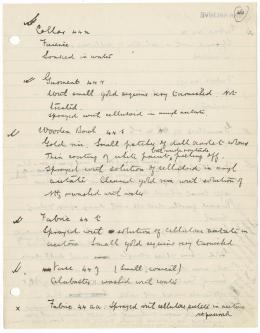 Collar 44 x
Faience
Soaked in water
Garment 44 r
With small gold sequins very tarnished. Not
treated.
Sprayed with celluloid in amyl acetate
Wooden Book 44 s
Gold rim. Small patches of dull
Thin coating of white paint, peeling off.
Sprayed with solution of celluloid in amyl
acetate. Cleaned gold rim with solution of
NH3 washed with water
Fabric 44 t
Sprayed with solution of cellulose acetate in
acetone. Small gold sequins very tarnished
Vase 44 z (Small, conical)
Alabaster washed with water
x Fabric 44 aa. Sprayed with cellulose acetate in acetone